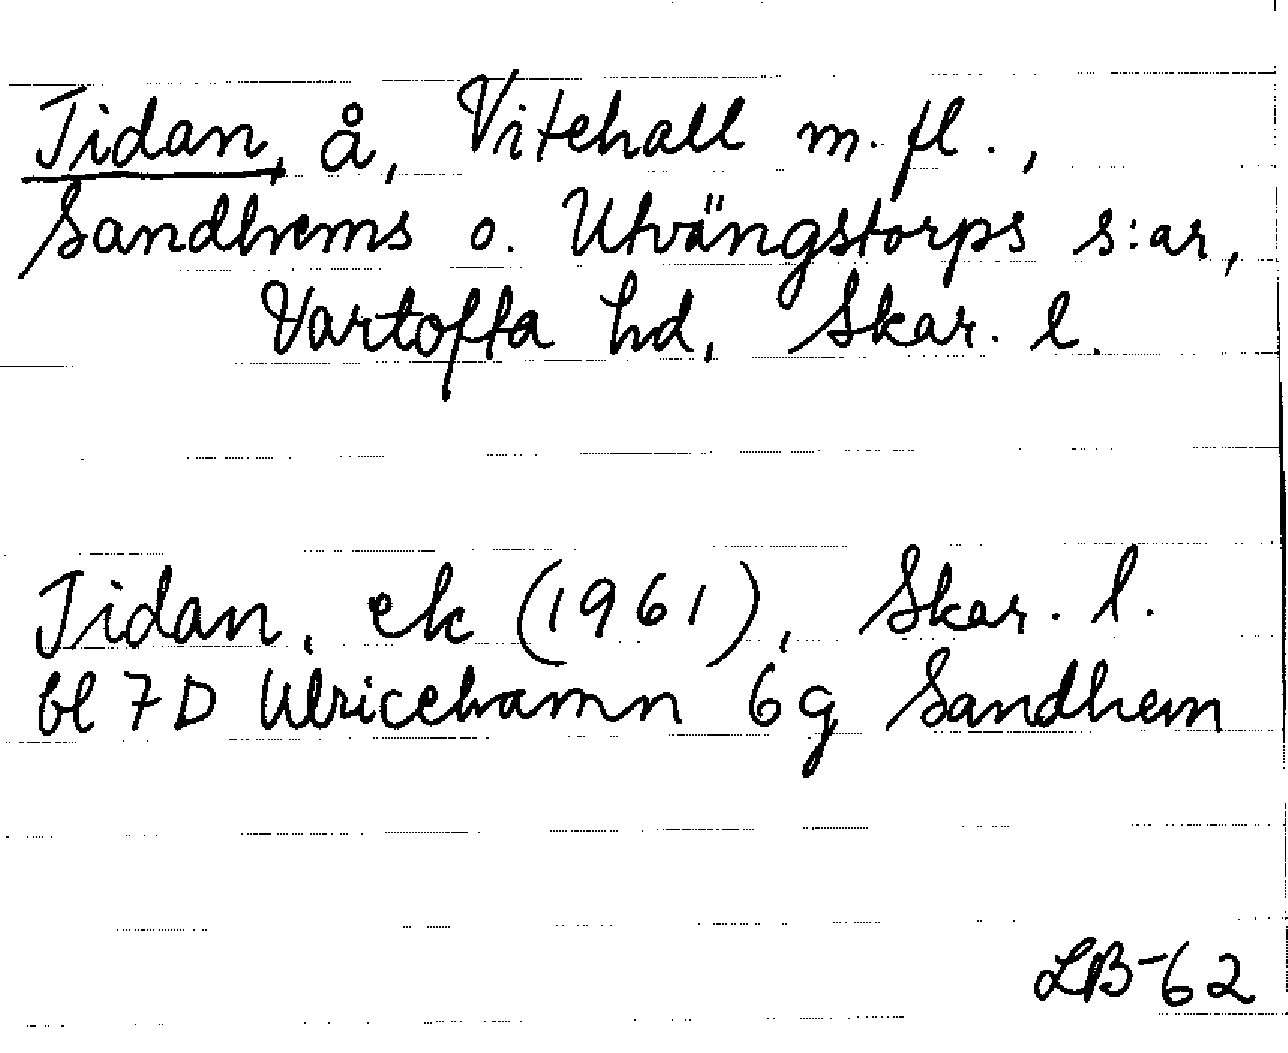 Tidan, å, Vitehall m. fl.,
Sandhems o. Utvängstorps s:ar,
Vartofta hd, Skar. l.
Tidan, ek (1961), Skar. l.
bl 7D Ulricehamn 6g Sandhem
LB-62